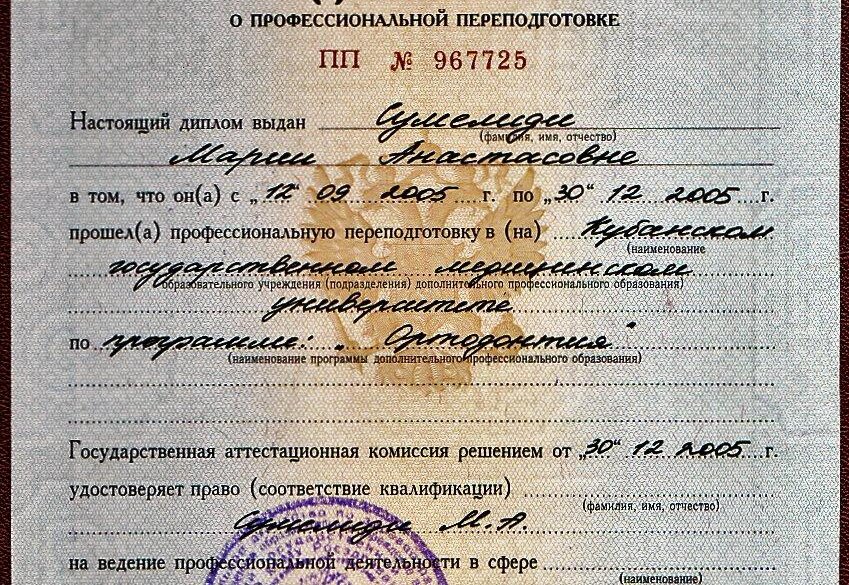 О ПРОФЕССИОНАЛЬНОЙ ПЕРЕПОДГОТОВКЕ
ПП № 967725
Настоящий диплом выдан Сумелиди
(фамилия, имя, отчество)
Марии Анастасовне
в том, что он(а) с „12“ 09 2005 г. по „30“ 12 2005 г.
прошел(а) профессиональную переподготовку в (на) Кубанском
(наименование
государственном медицинском
образовательного учреждения (подразделения) дополнительного профессионального образования)
университете
по программе: „Ортодонтия“
(наименование программы дополнительного профессионального образования)
Государственная аттестационная комиссия решением от „30“ 12 2005 г.
удостоверяет право (соответствие квалификации)
(фамилия, имя, отчество)
Сумелиди М.А.
на ведение профессиональной деятельности в сфере
(наименование)